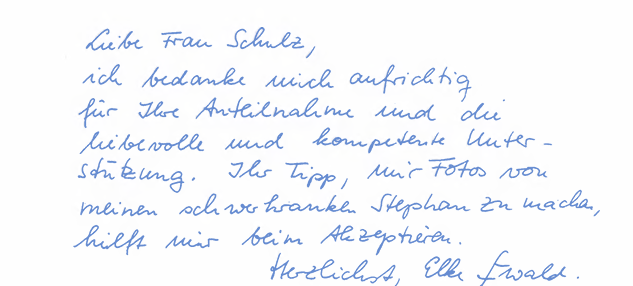 Liebe Frau Schulz,
ich bedanke mich aufrichtig
für Ihre Anteilnahme und die
liebevolle und kompetente Unter-
stützung. Ihr Tipp, mir Fotos von
meinen schwerkranken Stephan zu machen,
hilft mir beim Akzeptieren.
Herzlichst, Elke Ewald.